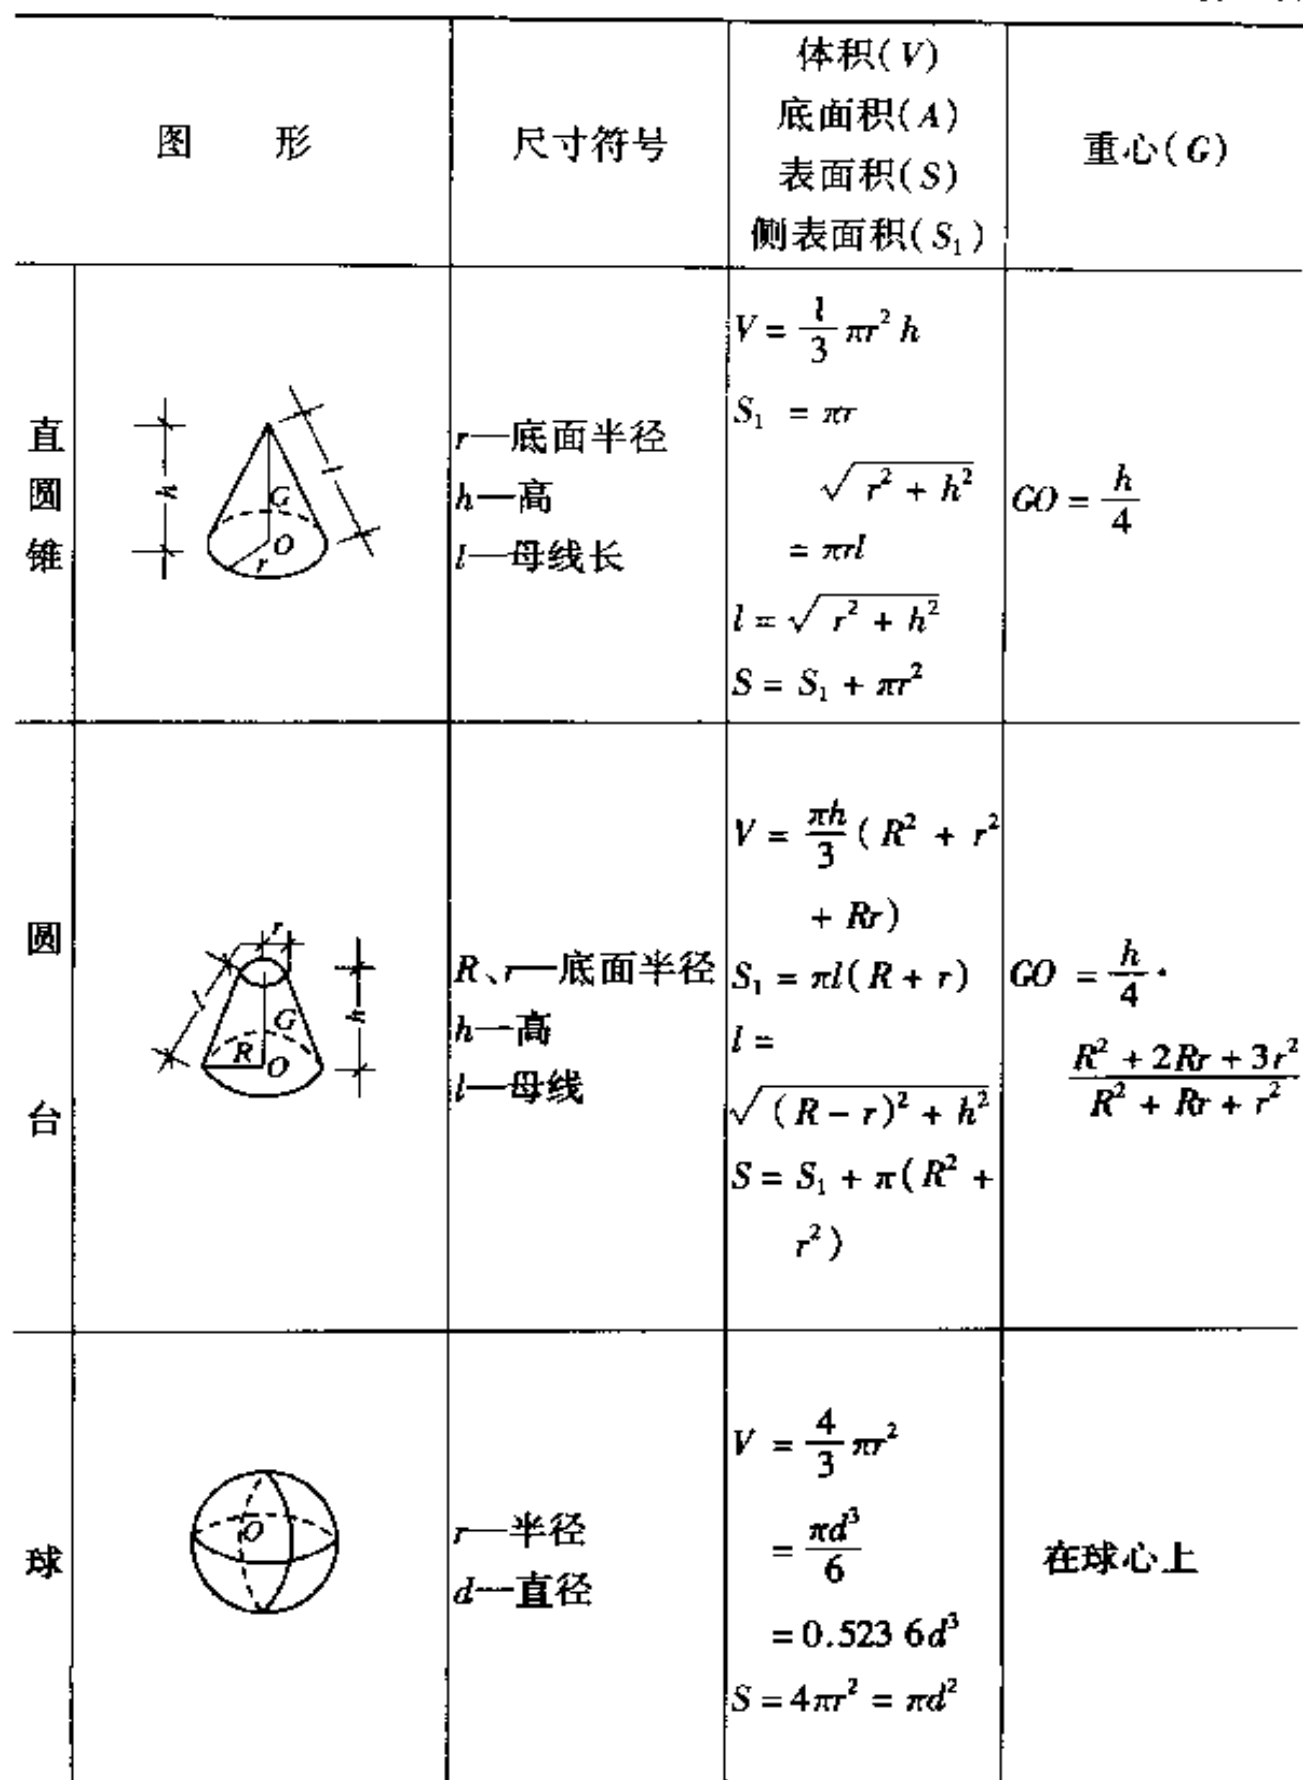 图 形
尺寸符号
体积(V)
底面积(A)
表面积(S)
侧表面积(S₁)
重心(G)
直圆锥
h
l
G
O
r
r—底面半径
h—高
l—母线长
V = \frac{1}{3} πr² h
S₁ = πr
√(r² + h²)
= πrl
l = √(r² + h²)
S = S₁ + πr²
GO = \frac{h}{4}
圆台
r
l
h
G
R
O
R、r—底面半径
h—高
l—母线
V = \frac{πh}{3} ( R² + r²
+ Rr)
S₁ = πl(R + r)
l =
√((R − r)² + h²)
S = S₁ + π(R² +
r²)
GO = \frac{h}{4} ·
\frac{R² + 2Rr + 3r²}{R² + Rr + r²}
球
O
r—半径
d—直径
V = \frac{4}{3} πr²
= \frac{πd³}{6}
= 0.523 6d³
S = 4πr² = πd²
在球心上